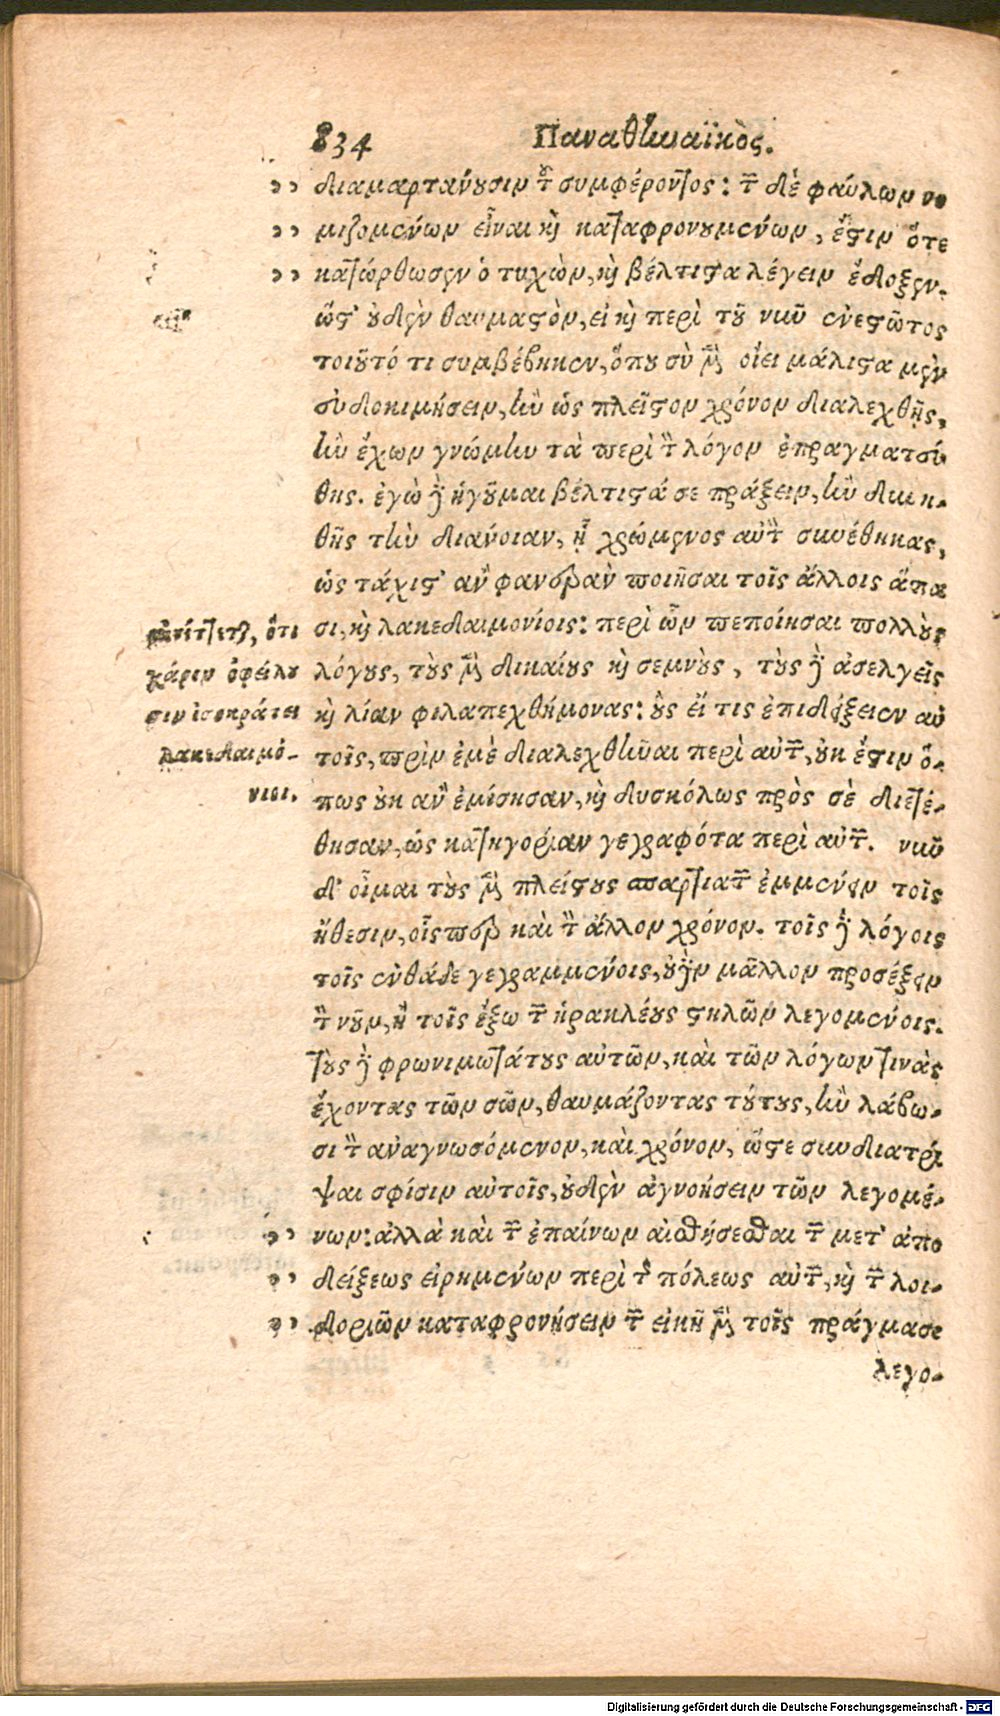 834 Παναθηναϊκὸς.
διαμαρτάνουσιν τοῦ συμφέροντος: τῶν δὲ φαύλων νο
μιζομένων εἶναι καὶ καταφρονουμένων, ἔστιν ὅτε
κατώρθωσεν ὁ τυχὼν, καὶ βέλτιστα λέγειν ἔδοξεν.
ὥστ' οὐδὲν θαυμαστὸν, εἰ καὶ περὶ τοῦ νῦν ἐνεστῶτος
τοιοῦτό τι συμβέβηκεν, ὅπου σὺ μὲν οἴει μάλιστα μὲν
εὐδοκιμήσειν, ἢν ὡς πλεῖστον χρόνον διαλεχθῇς,
ἣν ἔχων γνώμην τὰ περὶ τὸν λόγον ἐπραγματεύ
θης. ἐγὼ δὲ ἡγοῦμαι βέλτιστά σε πράξειν, ἢν δυνη-
θῇς τὴν διάνοιαν, ᾗ χρώμενος αὐτὸν συνέθηκας,
ὡς τάχιστ' ἂν φανερὰν ποιῆσαι τοῖς ἄλλοις ἅπα
σι, καὶ λακεδαιμονίοις: περὶ ὧν πεποίησαι πολλοὺς
λόγους, τοὺς μὲν δικαίους καὶ σεμνοὺς, τοὺς δὲ ἀσελγεῖς
καὶ λίαν φιλαπεχθήμονας: οὓς εἴ τις ἐπιδείξειεν αὐ
τοῖς, πρὶν ἐμὲ διαλεχθῆναι περὶ αὐτῶν, οὐκ ἔστιν ὅ-
πως οὐκ ἂν ἐμίσησαν, καὶ δυσκόλως πρὸς σὲ διετέ-
θησαν, ὡς κατηγορίαν γεγραφότα περὶ αὐτῶν. νῦν
δ' οἶμαι τοὺς μὲν πλείστους σπαρτιατῶν ἐμμένειν τοῖς
ἤθεσιν, οἷσπερ καὶ τὸν ἄλλον χρόνον. τοῖς δὲ λόγοις
τοῖς ἐνθάδε γεγραμμένοις, οὐδὲν μᾶλλον προσέξειν
τὸν νοῦν, ἢ τοῖς ἔξω τῶν ἡρακλέους στηλῶν λεγομένοις.
τοὺς δὲ φρωνιμωτάτους αὐτῶν, καὶ τῶν λόγων τινὰς
ἔχοντας τῶν σῶν, θαυμάζοντας τούτους, ἢν λάβω-
σι τὸν ἀναγνωσόμενον, καὶ χρόνον, ὥστε συνδιατρί
ψαι σφίσιν αὐτοῖς, οὐδὲν ἀγνοήσειν τῶν λεγομέ-
νων: ἀλλὰ καὶ τῶν ἐπαίνων αἰσθήσεσθαι τῶν μετ' ἀπο
δείξεως εἰρημένων περὶ τῆς πόλεως αὐτῶν, καὶ τῶν λοι-
δοριῶν καταφρονήσειν τῶν εἰκῇ μὲν τοῖς πράγμασι
λεγο-
ὅτι
χάριν ὀφείλου
σιν ἰσοκράτει
λακεδαιμό-
νιοι.
Digitalisierung gefördert durch die Deutsche Forschungsgemeinschaft - DFG